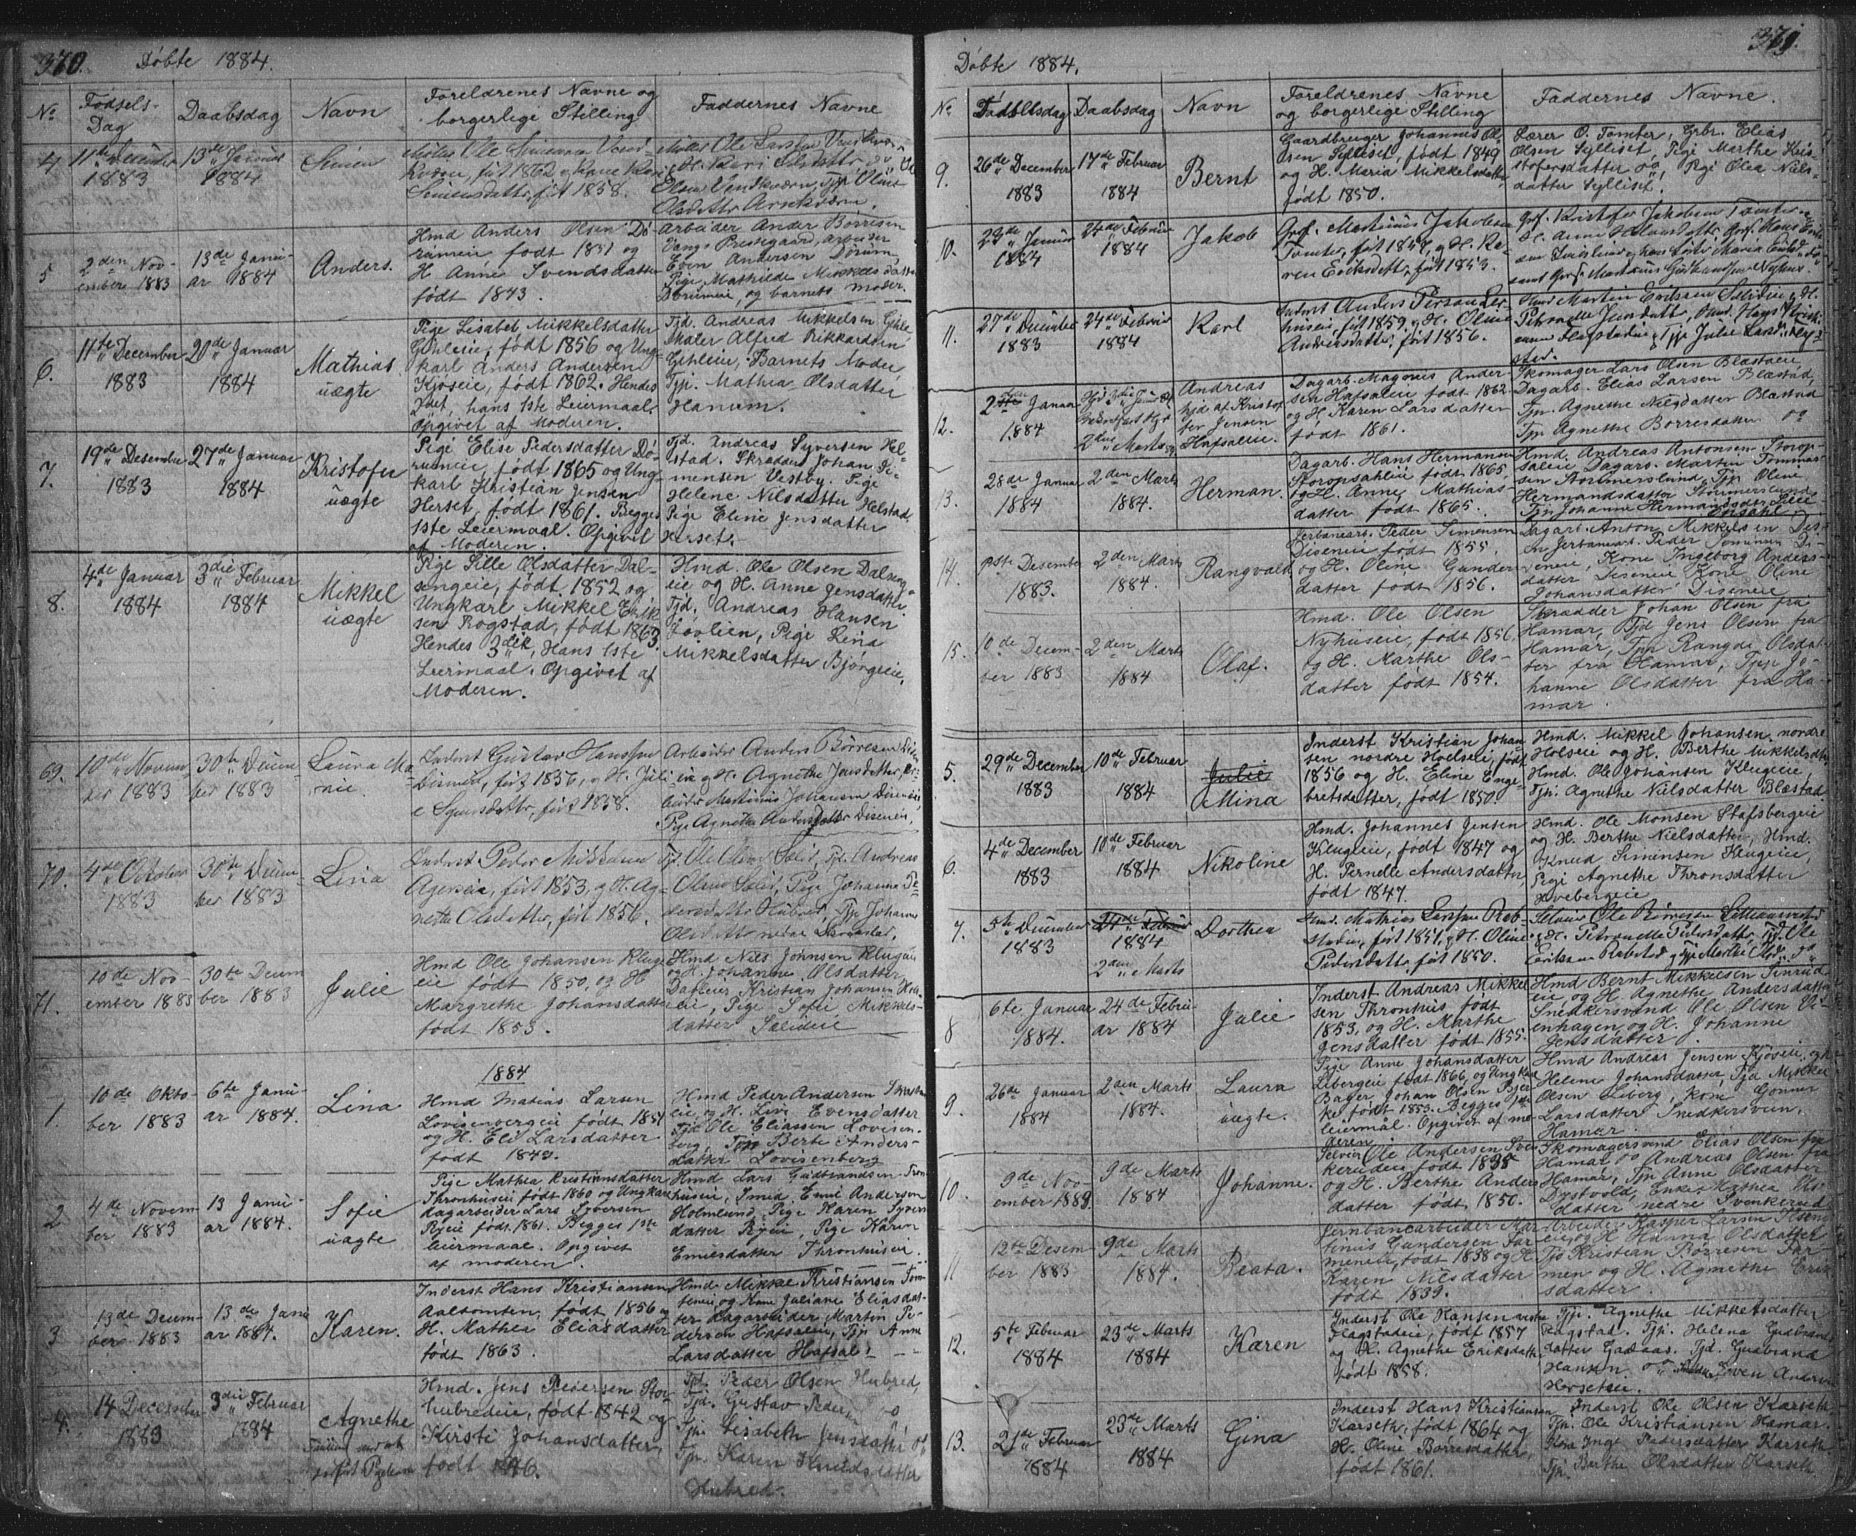 370.
Døbte 1884.
No
Fødsels-
Dag
Daabsdag
Navn
Foreldrenes Navne og
borgerlige Stilling
Faddernes Navne
4
11te December
1883
13de Januar
1884
Simen
født 1862
Simensdatter, født 1858.
5
2den Nov-
ember 1883
13de Janu-
ar 1884
Anders.
Hmd Anders Olsen Dø-
rumeie, født 1851 og
H. Anne Svendsdatter
født 1843.
Arbeider Ander Børresen
Vangs Prestegaard, arbeider
Even Andersen Dørum,
Pige Mathilde Mikkelsdatter
Dørumeie, og barnets moder.
6.
11te December
1883
20de Januar
1884
Mathias
uægte
Pige Lisabet Mikkelsdatter
Gehleie, født 1856 og Ung-
karl Anders Andersen
Kjøseie, født 1862. Hendes
2det, hans 1ste Leiermaal.
Opgivet af Moderen.
Tjd. Andreas Mikkelsen Gehle
Maler Alfred Rikkardsen
Gehleie, Barnets Moder
Tjp. Mathea Olsdatter
Hanum.
7.
19de Desember
1883
27de Januar
1884
Kristofer
uægte
Pige Elise Pedersdatter Dø-
rumeie, født 1865 og Ung-
karl Kristian Jensen
Herset, født 1861. Begges
1ste Leiermaal. Opgivet
af Moderen.
Tjd. Andreas Syversen Hel-
stad. Skrædder Johan Si-
mensen Vestby. Pige
Helene Nilsdatter Helstad,
Pige Eline Jensdatter
Herset.
8.
4de Januar
1884
3die Februar
1884
Mikkel
uægte
Pige Sille Olsdatter Dal-
sengeie, født 1852 og
Ungkarl Mikkel Erik-
sen Rogstad, født 1863
Hendes 3die, Hans 1ste
Leiermaal. Opgivet af
Moderen.
Hmd. Ole Olsen Dalseng-
eie og H. Anne Jensdatter.
Tjd. Andreas Hansen
Løvlien, Pige Lina
Mikkelsdatter Bjørgeie,
69.
10de Novem-
ber 1883
30te Decem-
ber 1883
Laura Ma-
rie.
Inderst Gustav Hanssen
Disenei, født 1856, og H. Juli-
e Syversdatter, født 1858.
Arbeider Anders Børresen Disen-
eie og H. Agnethe Jensdatter, Ar-
beider Martinus Johansen Diseneie
Pige Agnethe Andersdatter Diseneie.
70.
4de October
1883
30te Decem-
ber 1883
Lina
Inderst Peder Nilssen
Ageneie, født 1853, og H. Ag-
nethe Olsdatter, født 1856.
Pige Johanne Pe-
dersdatter Hubred, Tjp Johanne
71.
10de Nov-
ember 1883
30te Decem
ber 1883
Julie
Hmd Ole Johansen Kluge-
eie født 1850, og H
Margrethe Johansdatter
født 1853.
Hmd Nils Johnsen Klugeie
og H. Johanne Olsdatter
Kristian Johansen
Pige Sofie Mikkels-
datter Seiieie
1884
1.
10de Okto-
ber 1883
6te Janu-
ar 1884.
Lina
Hmd Matias Larsen
Lovisenbergeie født 1851
og H. Eli Larsdatter
født 1843.
Hmd Peder Andersen
eie og H. Live Evensdatter
Tjd Ole Eliassen Lovisen-
berg, Tjp Berte Anders-
datter Lovisenberg
2
4de Novem-
ber 1883
13 Janu-
ar 1884.
Sofie
uægte
Pige Mathea Kristiansdatter
Thronhuseie født 1860 og Ungkarl
dagarbeider Lars Syversen
Ryeie født 1861. Begges 1ste
leiermaal. Opgivet
af moderen.
Hmd Lars Gudbrandsen Tron-
huseie, Smid Emil Andersen
Holmlund, Pige Karen Syvers
datter Ryeie, Pige Karen
Emilsdatter Thronhuseie.
3
13de Decem-
ber 1883
13de Janu
ar 1884.
Karen.
Inderst Hans Kristiansen
Aalstomten, født 1856 og
H. Mathea Eliasdatter
født 1863.
Hmd Mikkel Kristiansen Tom-
teneie og Kone Juliane Eliasdat-
ter Dagarbeider Martin Pe-
dersen Hafsaleie, Tjp Anne
Larsdatter Hafsal
4.
14 December
1883
3die Februar
1884
Agnethe
Hmd. Jens Pedersen Stor-
hubredeie, født 1842 og
Kirsti Johansdatter
født 1846.
Tjd. Peder Olsen Hubred,
Tjd. Gustav Pedersen
Tjp. Lisabeth Jensdatter og
Tjp. Karen Knudsdatter
Hubred.
371.
Døbte 1884.
No
Fødselsdag
Daabsdag
Navn
Foreldrenes Navne
og borgerlige Stilling
Faddernes Navne.
9.
26de December
1883
17de Februar
1884
Bernt
Gaardbruger Johannes Ol-
sen Sylliset, født 1849
og H. Maria Mikkelsdatter
født 1850.
Lærer O. Tomter, Grbr. Elias
Olsen Sylliset, Pige Marthe Kris-
stofersdatter do, Pige Olea Nils-
datter Sylliset.
10.
23de Januar
1884
24de Februar
1884
Jakob
Grf. Martinus Jakobsen
Tomter, født 1854, og H. Ka-
ren Eriksdatter, født 1853.
11.
27de December
1883
24de Februar
1884
Karl
Inderst Anders Persen
født 1859, og H. Oline
Andersdatter, født 1856.
12.
2den Januar
1884
2den Marts
Andreas
hjd af Kristof-
fer Jensen
Hafsaleie.
Dagarb. Magnus Ander
sen Hafsaleie født 1862
og H. Karen Larsdatter
født 1861.
Skomager Lars Olsen Blæstadeie
Dagarb. Elias Larsen Blæstad,
Tjp. Agnethe Nilsdatter Blæstad og
Tjp Agnethe Børresdatter do
13.
28de Januar
1884
2den Marts
1884.
Herman.
Dagarb. Hans Hermansen
Storopsahleie født 1865.
og H. Anne Mathias-
datter født 1865.
Hmd. Andreas Antonsen Storop-
saleie Dagarb. Marten Tommas-
sen Stommerslund Tjp Oline
Hermandsdatter Stommerslund
Tjp. Johanne Hermansdatter
Opsahl
14.
Desember
1883.
2den Marts
1884.
Rangvald
Jernbanearb. Peder Simensen
Diseneie født 1855.
og H. Oline Gunders-
datter født 1856.
Dagarb. Anton Mikkelsen Dis-
en Jernbanearb. Peder Simensen Di-
seneie, Kone Ingeborg Anders-
datter Diseneie Kone Oline
Johansdatter Diseneie
15.
10de Decem-
ber 1883
2den Marts
1884
Olaf.
Hmd. Ole Olsen
Nyhuseie, født 1856,
og H. Marthe Ols-
datter født 1854.
Skrædder Johan Olsen fra
Hamar, Tjd Jens Olsen fra
Hamar, Tjp Rangdi Olsdat-
ter fra Hamar, Tjp Jo-
hanne Olsdatter fra Ha-
mar.
5.
29de December
1883
10de Februar
1884
Julie
Mina
Inderst Kristian Johan
sen nordre Hoelseie, født
1856 og H. Eline Enge-
bretsdatter, født 1850.
Hmd. Mikkel Johansen nordre
Holseie og H. Berthe Mikkelsdtr.
Hmd. Ole Johansen Klugeie,
Tjp. Agnethe Nielsdatter Blæstad.
6.
4de December
1883
10de Februar
1884
Nikoline
Hmd. Johannes Jensen
Klugeie, født 1847 og
H. Pernelle Andersdatter
født 1847.
Hmd. Ole Monsen Stafsbergeie
og H. Berthe Nielsdatter, Hmd.
Knud Simensen Klugeie,
Pige Agnethe Thronsdatter
Hvebergeie
7.
5te December
1883
24de Februar
1884
2den Marts
Dorthea
Hmd. Mathias Larssen Rob-
stadeie, født 1851, og H. Oline
Pedersdatter, født 1850.
8
6te Januar
1884.
24de Febru-
ar 1884
Julie
Inderst Andreas Mikkel
sen Thronhus født
1853, og H. Marthe
Jensdatter født 1855.
Hmd Bernt Mikkelsen Finrud
eie og H. Agnethe Andersdatter
Snedkersvend Ole Olsen Vi-
enhagen, og H. Johanne
Jensdatter.
9.
26de Januar
1884
2den Marts
1884.
Laura
uægte.
Pige Anne Johansdatter
Libergeie født 1866, og Ungkarl
Bager Johan Olsen Bjer-
ke født 1853. Begges 1ste
leiermål. Opgivet af mo-
deren
Hmd Andreas Jensen Kjøseie, og H
Helene Johansdatter, Tjd Mikkel
Olsen Liberg, Kone Gonner
Larsdatter Snedkersveen,
Hamar.
10.
9de No-
ember 1883
9de Marts
1884
Johanne.
Ole Andersen Sven-
kerudeie, født 1838
og H. Berthe Anders-
datter født 1850.
Skomagersvend Elias Olsen fra
Hamar og Andreas Olsen fra
Hamar, Tjp Anne Olsdatter
Dystvold, Enke Mathea Ols-
datter nedre Svenkerud
11
12te Desem-
ber 1883
9de Marts
1884.
Beata.
Jernbanearbeider Mar-
tinus Gundersen Far-
meneie, født 1838 og H.
Karen Nilsdatter
født 1839.
Arbeider Kasper Larsen
eie og H. Hanna Olsdatter
Tjd Kristian Børresen Far-
men og H. Agnethe Erik
sdatter.
12.
5te Februar
1884
23de Marts
1884
Karen
Inderst Ole Hansen nordre
Flagstadeie, født 1857
og H. Agnethe Eriksdatter
født 1858.
Tjp. Agnethe Mikkelsdatter
Flagstad. Tjp. Helena Gudbrands
datter Gaasaas. Tjd. Gudbrand
Hansen do Even Andersen
Horsetseie.
13.
21de Februar
1884
23de Marts
1884
Gina
Inderst Hans Kristiansen
Karseth, født 1864 og
H. Oline Børresdatter,
født 1861.
Inderst Ole Olsen Karseth
Tjp. Ole Kristiansen Hamar.
Kone Inge Pedersdatter Karseth
Tjp. Berthe Olsdatter Karseth